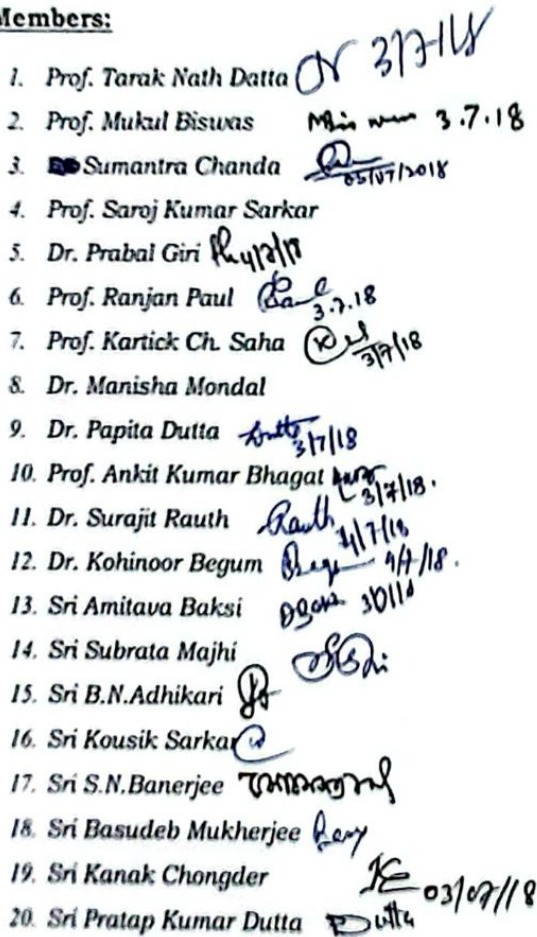 Members:
1. Prof. Tarak Nath Datta 3/7/18
2. Prof. Mukul Biswas 3.7.18
3. Sumantra Chanda 05/07/2018
4. Prof. Saroj Kumar Sarkar
5. Dr. Prabal Giri 4/7/18
6. Prof. Ranjan Paul Paul 3.7.18
7. Prof. Kartick Ch. Saha 3/7/18
8. Dr. Manisha Mondal
9. Dr. Papita Dutta Dutta 3/7/18
10. Prof. Ankit Kumar Bhagat 3/7/18.
11. Dr. Surajit Rauth Rauth 4/7/18
12. Dr. Kohinoor Begum
13. Sri Amitava Baksi
14. Sri Subrata Majhi
15. Sri B.N.Adhikari
16. Sri Kousik Sarkar
17. Sri S.N.Banerjee
18. Sri Basudeb Mukherjee
19. Sri Kanak Chongder 03/07/18
20. Sri Pratap Kumar Dutta Dutta